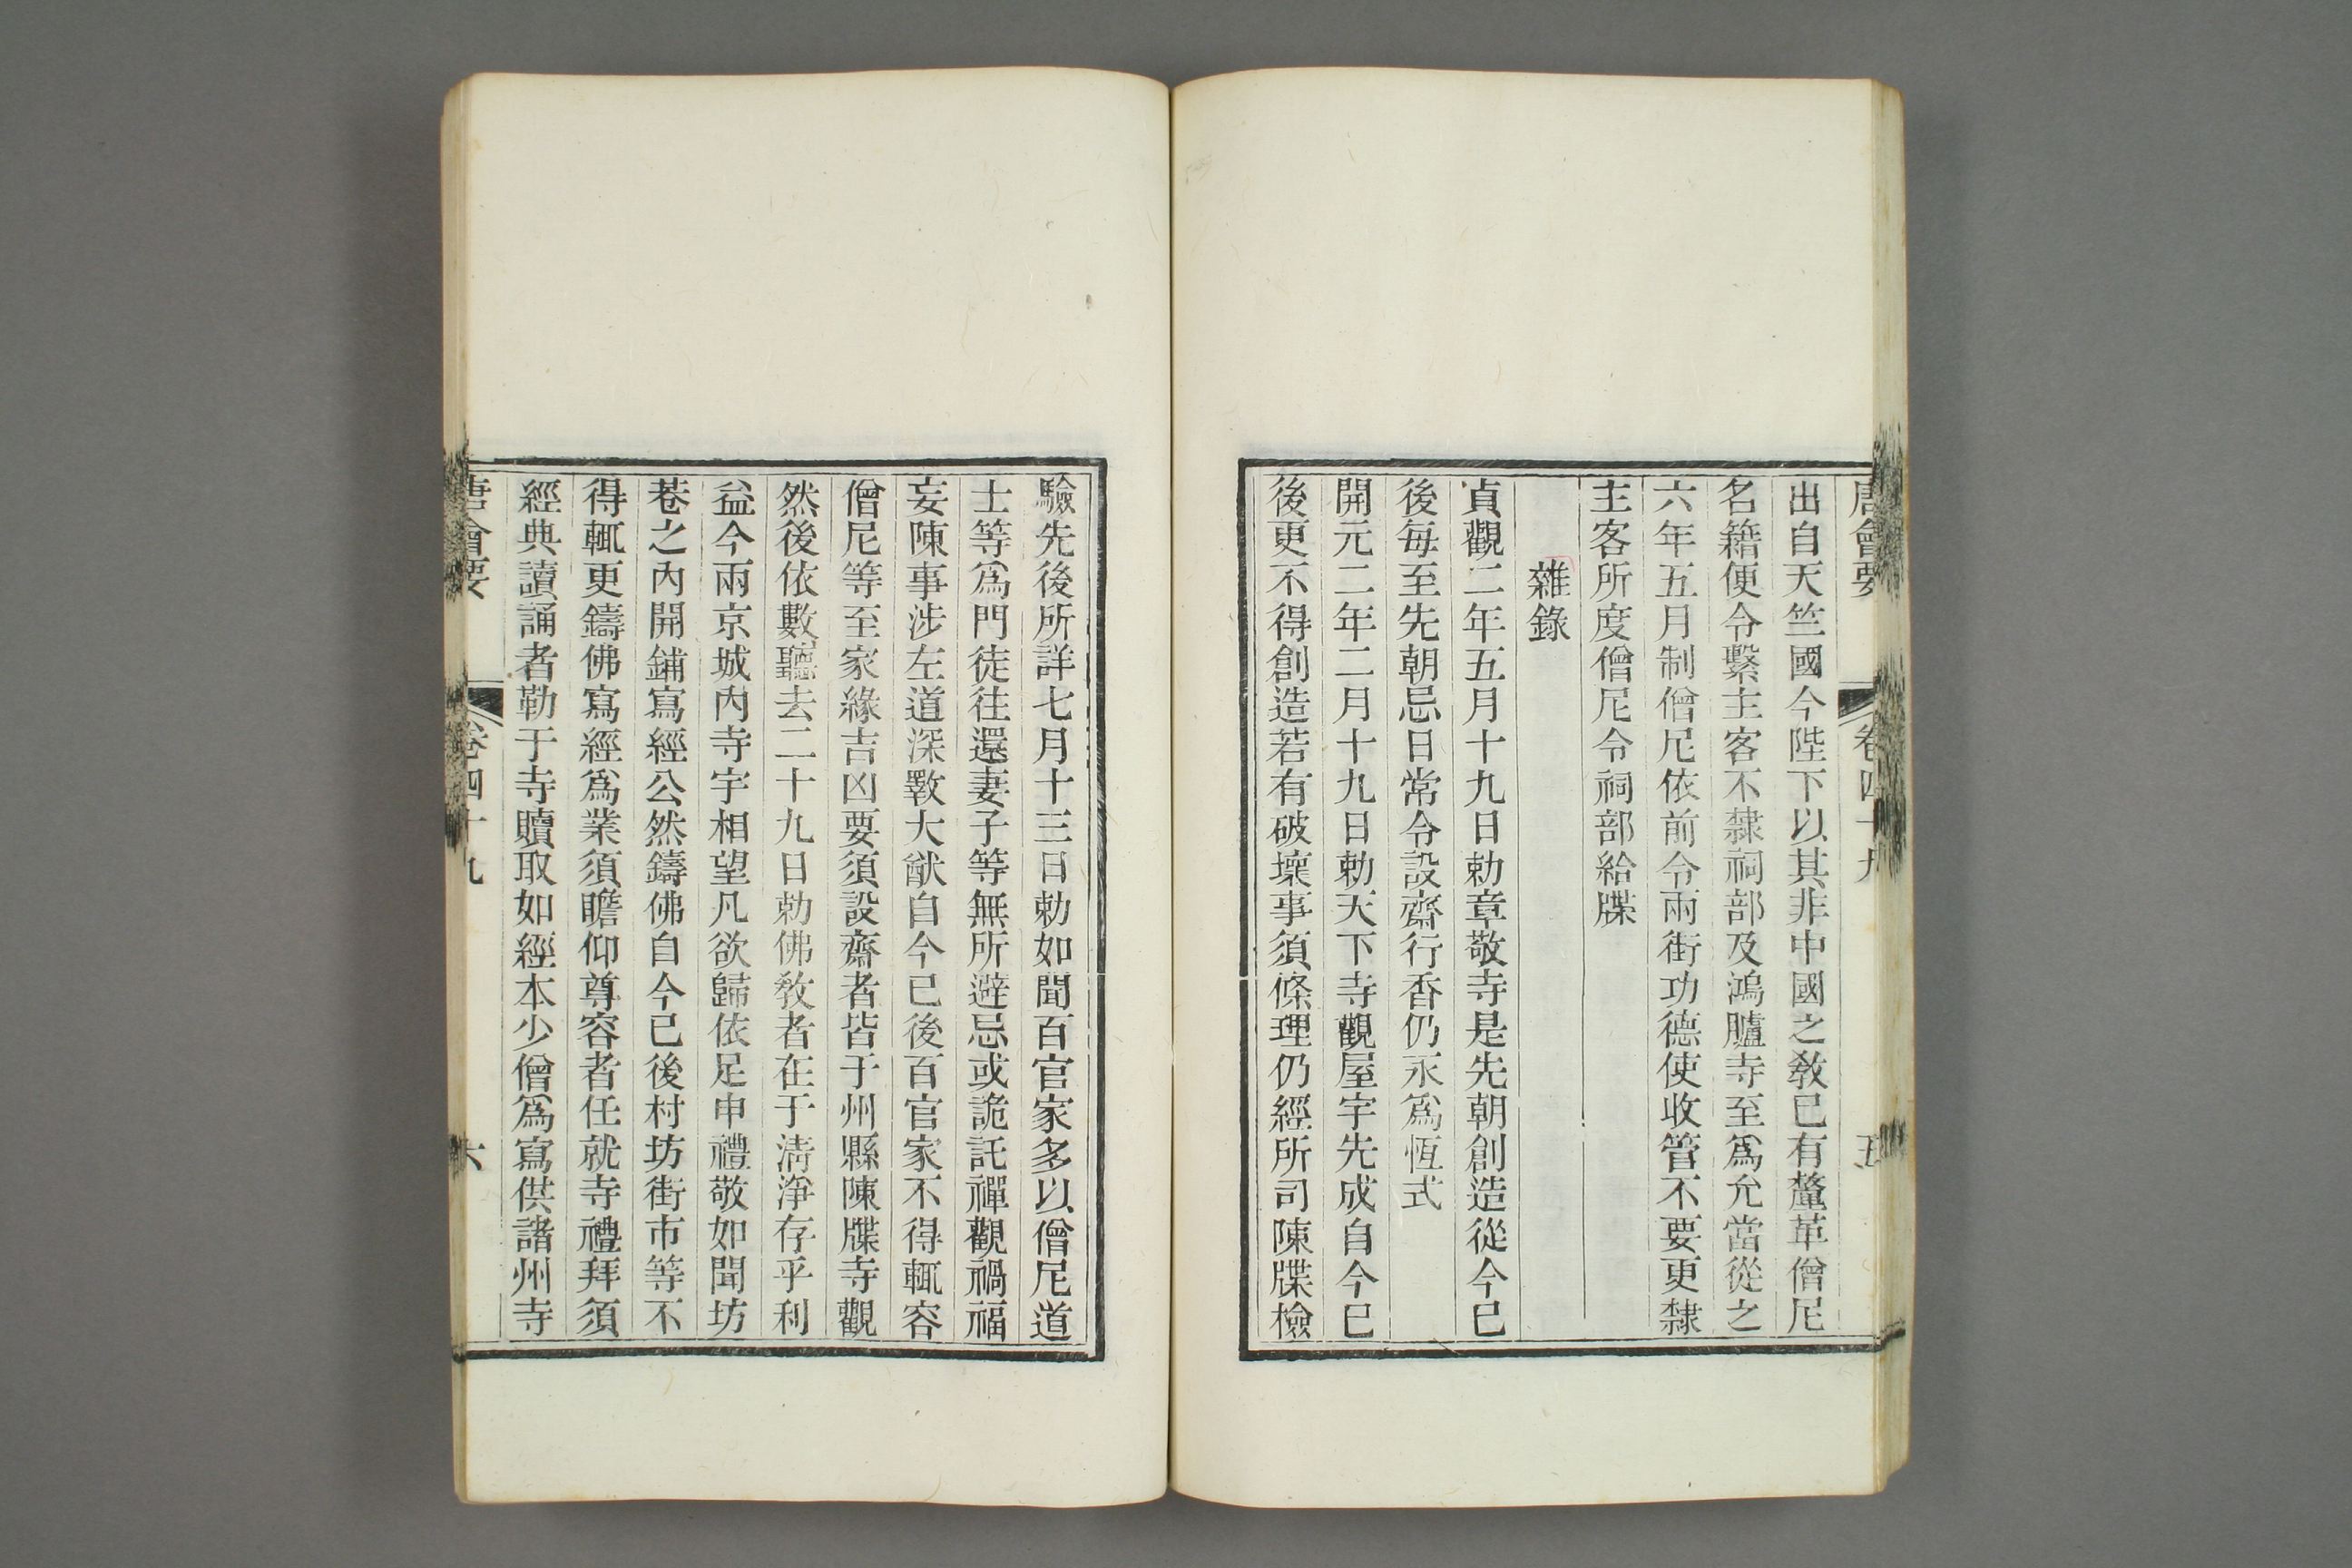 唐會要 卷四十九 五
出自天竺國今陛下以其非中國之敎已有釐革僧尼
名籍便令繫主客不隸祠部及鴻臚寺至爲允當從之
六年五月制僧尼依前令兩街功德使收管不要更隸
主客所度僧尼令祠部給牒
雜錄
貞觀二年五月十九日勅章敬寺是先朝創造從今已
後每至先朝忌日常令設齋行香仍永爲恆式
開元二年二月十九日勅天下寺觀屋宇先成自今已
後更不得創造若有破壞事須條理仍經所司陳牒檢
驗先後所詳七月十三日勅如聞百官家多以僧尼道
士等爲門徒往還妻子等無所避忌或詭託禪觀禍福
妄陳事涉左道深斁大猷自今已後百官家不得輒容
僧尼等至家緣吉凶要須設齋者皆于州縣陳牒寺觀
然後依數聽去二十九日勅佛敎者在于淸淨存乎利
益今兩京城內寺宇相望凡欲歸依足申禮敬如聞坊
巷之內開鋪寫經公然鑄佛自今已後村坊街市等不
得輒更鑄佛寫經爲業須瞻仰尊容者任就寺禮拜須
經典讀誦者勒于寺贖取如經本少僧爲寫供諸州寺
唐會要 卷四十九 六